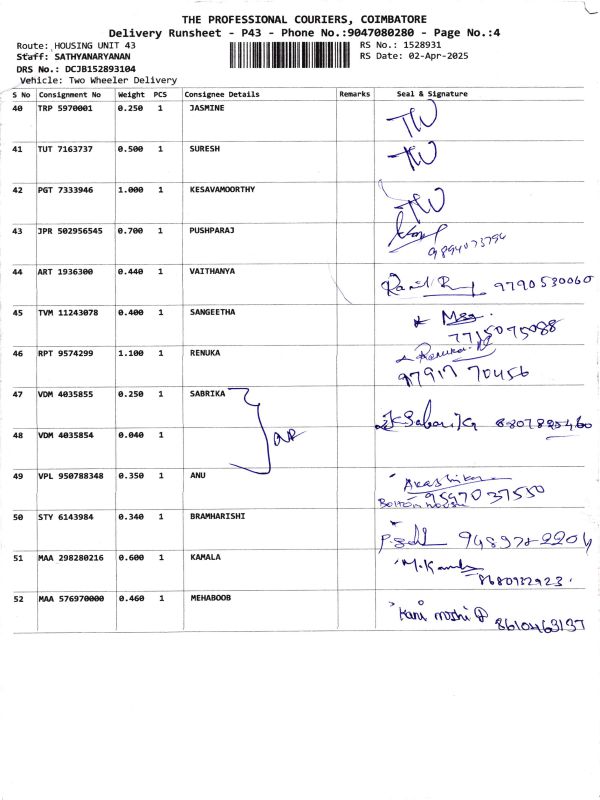 THE PROFESSIONAL COURIERS, COIMBATORE
Delivery Runsheet - P43 - Phone No.:9047080280 - Page No.:4
Route: HOUSING UNIT 43 RS No.: 1528931
Staff: SATHYANARYANAN RS Date: 02-Apr-2025
DRS No.: DCJB152893104
Vehicle: Two Wheeler Delivery
S No Consignment No Weight PCS Consignee Details Remarks Seal & Signature
40 TRP 5970001 0.250 1 JASMINE TW
41 TUT 7163737 0.500 1 SURESH TW
42 PGT 7333946 1.000 1 KESAVAMOORTHY TW
43 JPR 502956545 0.700 1 PUSHPARAJ
9894073796
44 ART 1936300 0.440 1 VAITHANYA 9790530060
45 TVM 11243078 0.400 1 SANGEETHA
7715075088
46 RPT 9574299 1.100 1 RENUKA Renuka
97917 70456
47 VDM 4035855 0.250 1 SABRIKA
48 VDM 4035854 0.040 1
49 VPL 950788348 0.350 1 ANU
9597037550
50 STY 6143984 0.340 1 BRAMHARISHI
51 MAA 298280216 0.600 1 KAMALA
8680932923
52 MAA 576970000 0.460 1 MEHABOOB
8610463137